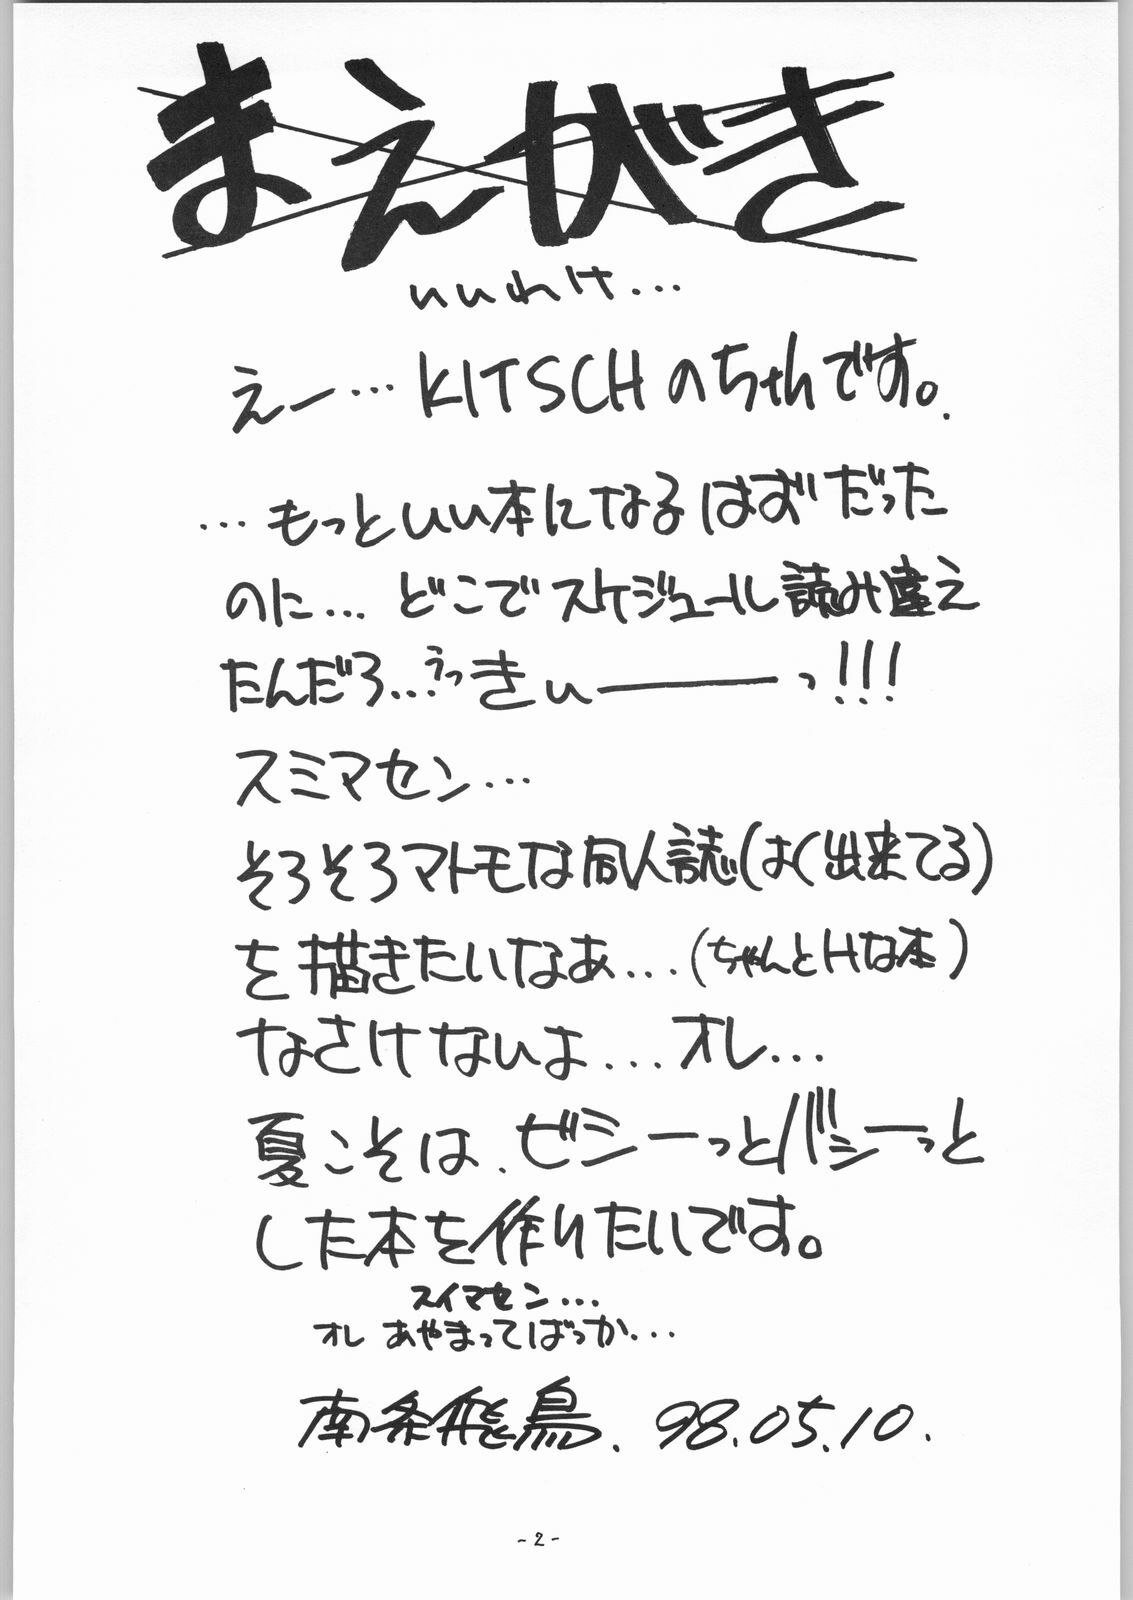 まえがき
いいわけ...
えー... KITSCHのちゃんです。
...もっといい本になるはずだった
のに... どこでスケジュール読み違え
たんだろ...うっきぃーーっ!!!
スミマセン...
そろそろマトモな同人誌(よく出来てる)
を描きたいなあ...(ちゃんとHな本)
なさけないよ...オレ...
夏こそは、ビシーっとバシーっと
した本を作りたいです。
スイマセン...
オレ あやまってばっか...
南条飛鳥. 98.05.10.
-2-